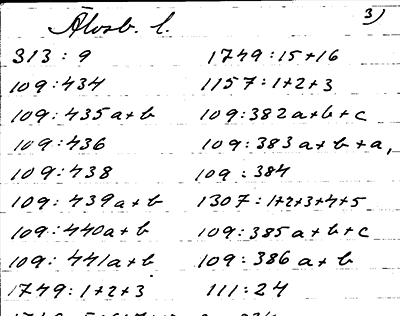 3)
Älvsb. l.
313 : 9
109:434
109:435 a+b
109:436
109:438
109:439 a+b
109:440 a+b
109:441 a+b
1749:1+2+3
1749:15+16
1157:1+2+3
109:382 a+b+c
109:383 a+b+a,
109:384
1307:1+2+3+4+5
109:385 a+b+c
109:386 a+b
111:24